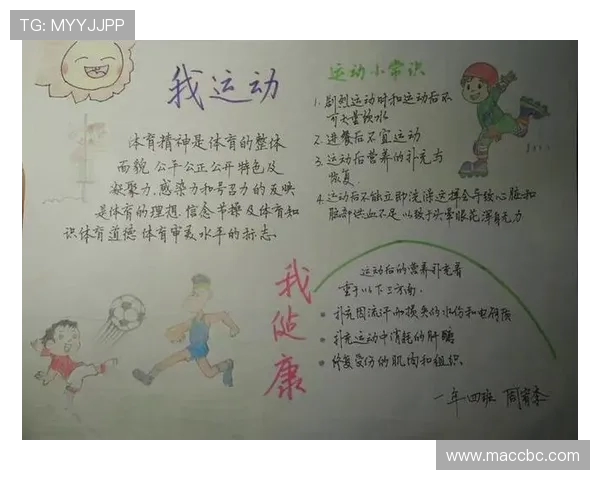 TG: MYYJJPP
我运动
体育精神是体育的整体
面貌.公平公正公开特色及
凝聚力.感染力和号召力的反映
是体育的理想.信念节操及体育知
识体育道德体育审美水平的标志.
运动小常识
1. 剧烈运动时和运动后不
可大量饮水
2. 进餐后不宜运动
3. 运动后营养的补充与
恢复.
4. 运动后不能立即洗澡这样会导致心脏和
脑部供血不足以致于头晕眼花浑身无力
我健康
运动后的营养补充着
重于以下三方面.
补充因流汗而损失的水份和电解质
补充运动中消耗的肝糖
修复受伤的肌肉和组织.
一年四班
www.maccbc.com